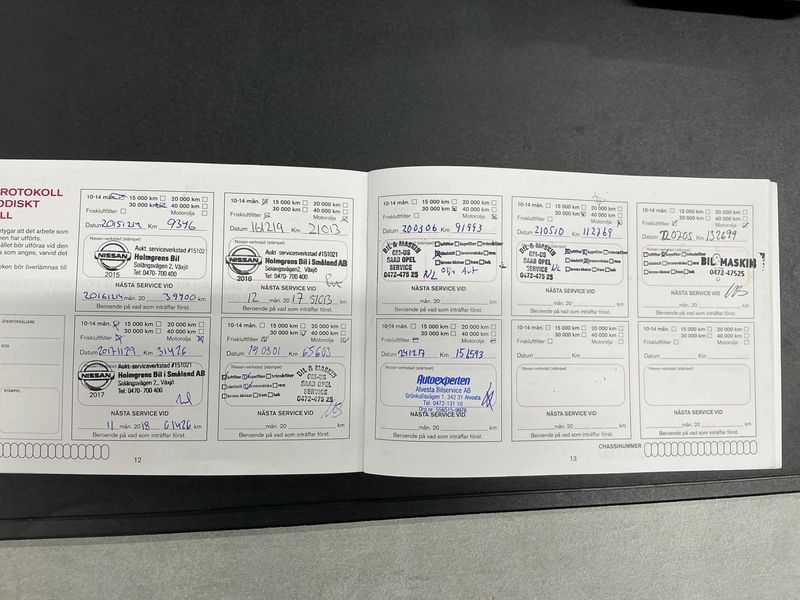 ROTOKOLL
ODISKT
LL
tygar att det arbete som
en har utförts.
ållet bör utföras vid den
som anges, varvid det
oken bör överlämnas till
ÅTERFÖRSÄLJARE
KOD
STÄMPEL
10-14 mån. 15 000 km 20 000 km
30 000 km 40 000 km
Friskluftfilter Motorolja
Datum 20151214 Km 9346
Nissan-verkstad (stämpel)
NISSAN
2015
Aukt. serviceverkstad #15102
Holmgrens Bil
Solängsvägen 2, Växjö
Tel: 0470-700 400
NÄSTA SERVICE VID
20161214 mån. 20 39400 km
Beroende på vad som inträffar först.
10-14 mån. 15 000 km 20 000 km
30 000 km 40 000 km
Friskluftfilter Motorolja
Datum 161219 Km 21013
Nissan-verkstad (stämpel)
NISSAN
2016
Aukt serviceverkstad #151021
Holmgrens Bil i Småland AB
Solängsvägen 2, Växjö
Tel: 0470-700 400
NÄSTA SERVICE VID
12 mån. 20 17 51013 km
Beroende på vad som inträffar först.
10-14 15 000 km 20 000 km
30 000 km 40 000 km
Friskluftfilter Motorolja
Datum 20171129 Km 31426
NISSAN
2017
Aukt.serviceverkstad #151021
Holmgrens Bil i Småland AB
Solängsvägen 2, Växjö
Tel: 0470-700 400
NÄSTA SERVICE VID
11 mån. 2018 61426 km
Beroende på vad som inträffar först.
10-14 mån. 15 000 km 20 000 km
30 000 km 40 000 km
Friskluftfilter Motorolja
Datum 190301 Km 65663
BIL & MASKIN
GM-US
SAAB OPEL
SERVICE
0472-475 25
NÄSTA SERVICE VID
mån. 20 km
Beroende på vad som inträffar först.
12
10-14 mån. 15 000 km 20 000 km
30 000 km 40 000 km
Friskluftfilter Motorolja
Datum 200306 Km 91993
Nissan-verkstad (stämpel)
BIL & MASKIN
GM-US
SAAB OPEL
SERVICE
0472-475 25
NL
NÄSTA SERVICE VID
mån. 20 km
Beroende på vad som inträffar först.
10-14 mån. 15 000 km 20 000 km
30 000 km 40 000 km
Friskluftfilter Motorolja
Datum 210510 Km 112769
Nissan-verkstad (stämpel)
BIL & MASKIN
GM-US
SAAB OPEL
SERVICE
0472-475 25
NL
NÄSTA SERVICE VID
mån. 20 km
Beroende på vad som inträffar först.
10-14 mån. 15 000 km 20 000 km
30 000 km 40 000 km
Friskluftfilter Motorolja
Datum 220205 Km 132629
Nissan-verkstad (stämpel)
BIL & MASKIN
0472-47525
NÄSTA SERVICE VID
mån. 20 km
Beroende på vad som inträffar först.
10-14 mån. 15 000 km 20 000 km
30 000 km 40 000 km
Friskluftfilter Motorolja
Datum Km 151593
Nissan-verkstad (stämpel)
Autoexperten
Alvesta Bilservice AB
Grönkullavägen 1, 342 31 Alvesta
Tel. 0472-131 10
Org nr 556515-9976
NÄSTA SERVICE VID
mån. 20 km
Beroende på vad som inträffar först.
10-14 mån. 15 000 km 20 000 km
30 000 km 40 000 km
Friskluftfilter Motorolja
Datum Km
Nissan-verkstad (stämpel)
NÄSTA SERVICE VID
mån. 20 km
Beroende på vad som inträffar först.
10-14 mån. 15 000 km 20 000 km
30 000 km 40 000 km
Friskluftfilter Motorolja
Datum Km
Nissan-verkstad (stämpel)
NÄSTA SERVICE VID
mån. 20 km
Beroende på vad som inträffar först.
CHASSINUMMER
13